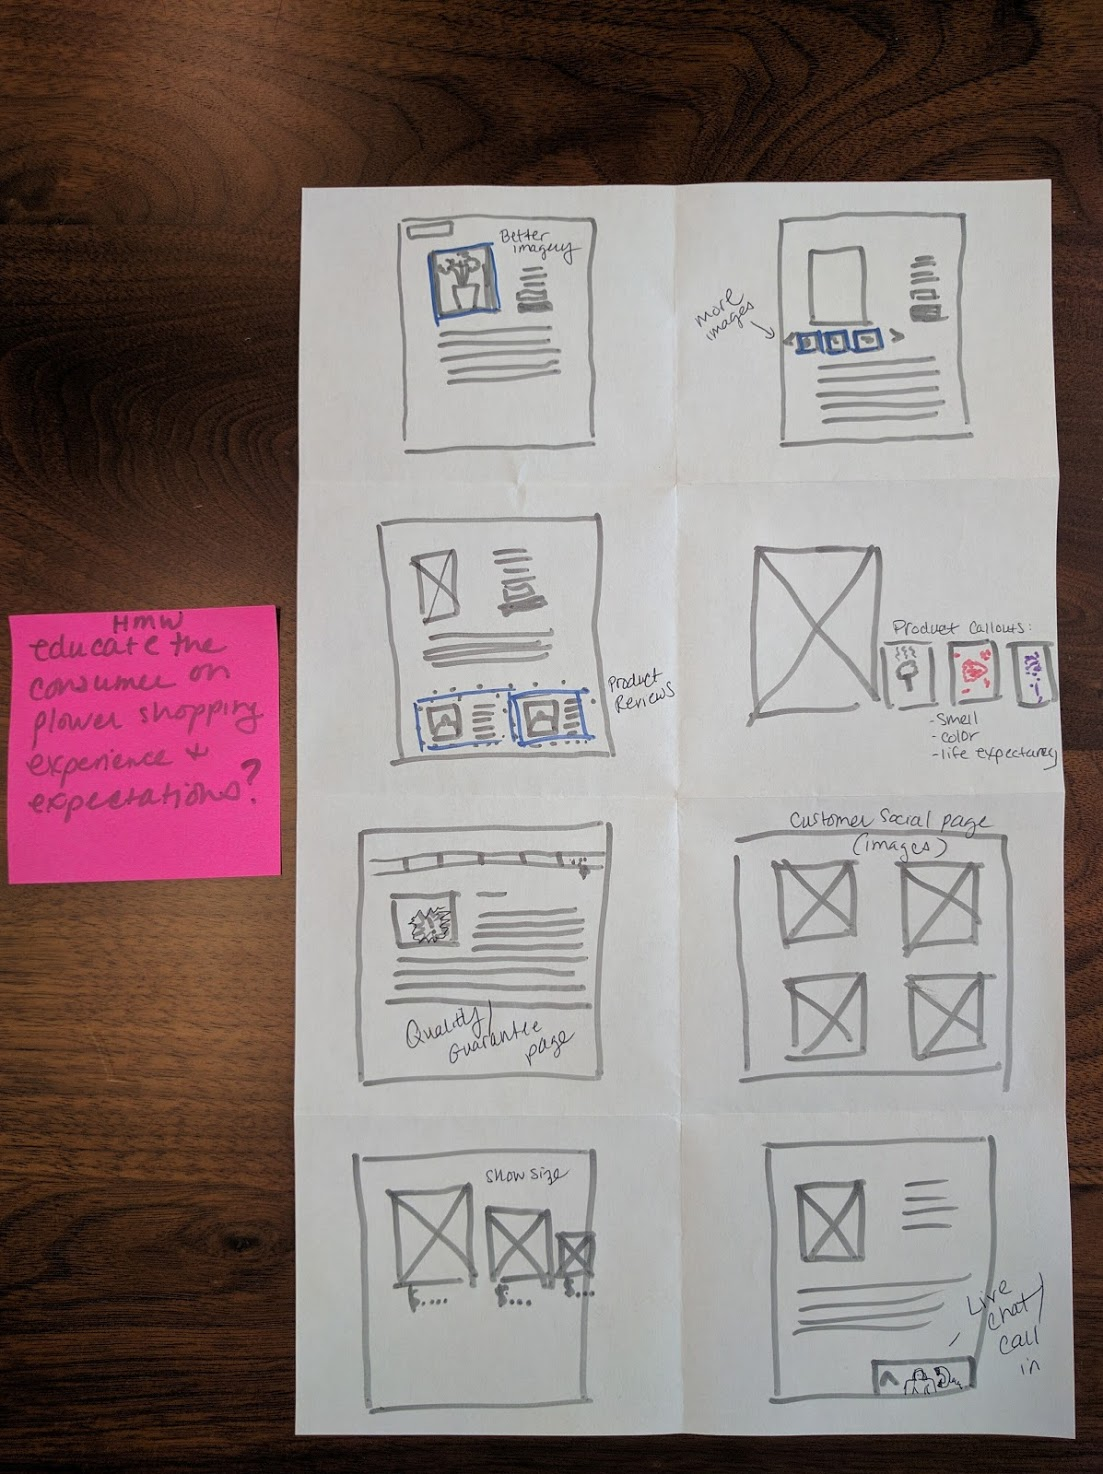 HMW
educate the
consumer on
flower shopping
experience +
expectations?
Better
imagery
more
images
Product
Reviews
Product Callouts:
-smell
-color
-life expectancy
Quality/
Guarantee
page
Customer Social page
(images)
Show size
$....
$...
$...
Live
chat/
call
in